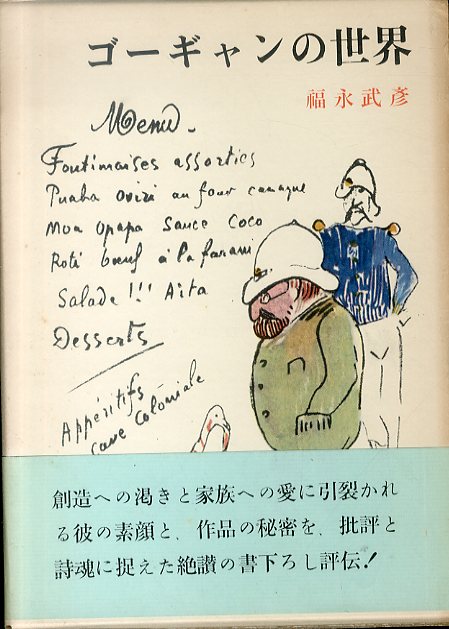 ゴーギャンの世界
福永武彦
Menu.
Foutimaises assorties
Puaha oviri au four canaque
Moa opapa Sauce Coco
Roti bœuf à la farani
Salade !!! Aita
Desserts
Appéritifs
cave Coloniale
創造への渇きと家族への愛に引裂かれ
る彼の素顔と、作品の秘密を、批評と
詩魂に捉えた絶讃の書下ろし評伝!